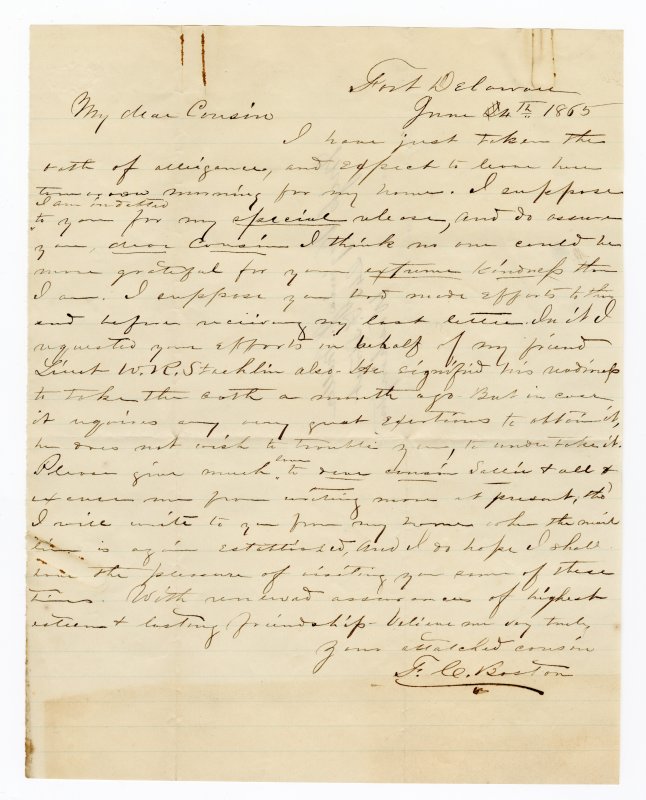 Fort Delaware
June 4th 1865
My dear Cousin
I have just taken the
oath of allegence, and expect to leave here
tomorrow morning for my home. I suppose
I am indetted
to you for my special release, and do assure
you, dear Cousin I think no one could be
more grateful for your extreme kindness than
I am. I suppose you had made efforts to this
end before receiving my last letter. In it I
requested your efforts in behalf of my friend
Lieut W. R. Staehlin also. He signified his readiness
to take the oath a month ago. But in case
it requires any very great exertions to obtain it,
he does not wish to trouble you, to undertake it.
Please give much love to dear cousin Sallie & all &
excuse me from writing more at present, tho'
I will write to you from my home when the mail
line is again established, and I do hope I shall
have the pleasure of visiting you some of these
times. With renewed assurances of highest
esteem & lasting friendship believe me very truly
your attatched cousin
F. C. Boston